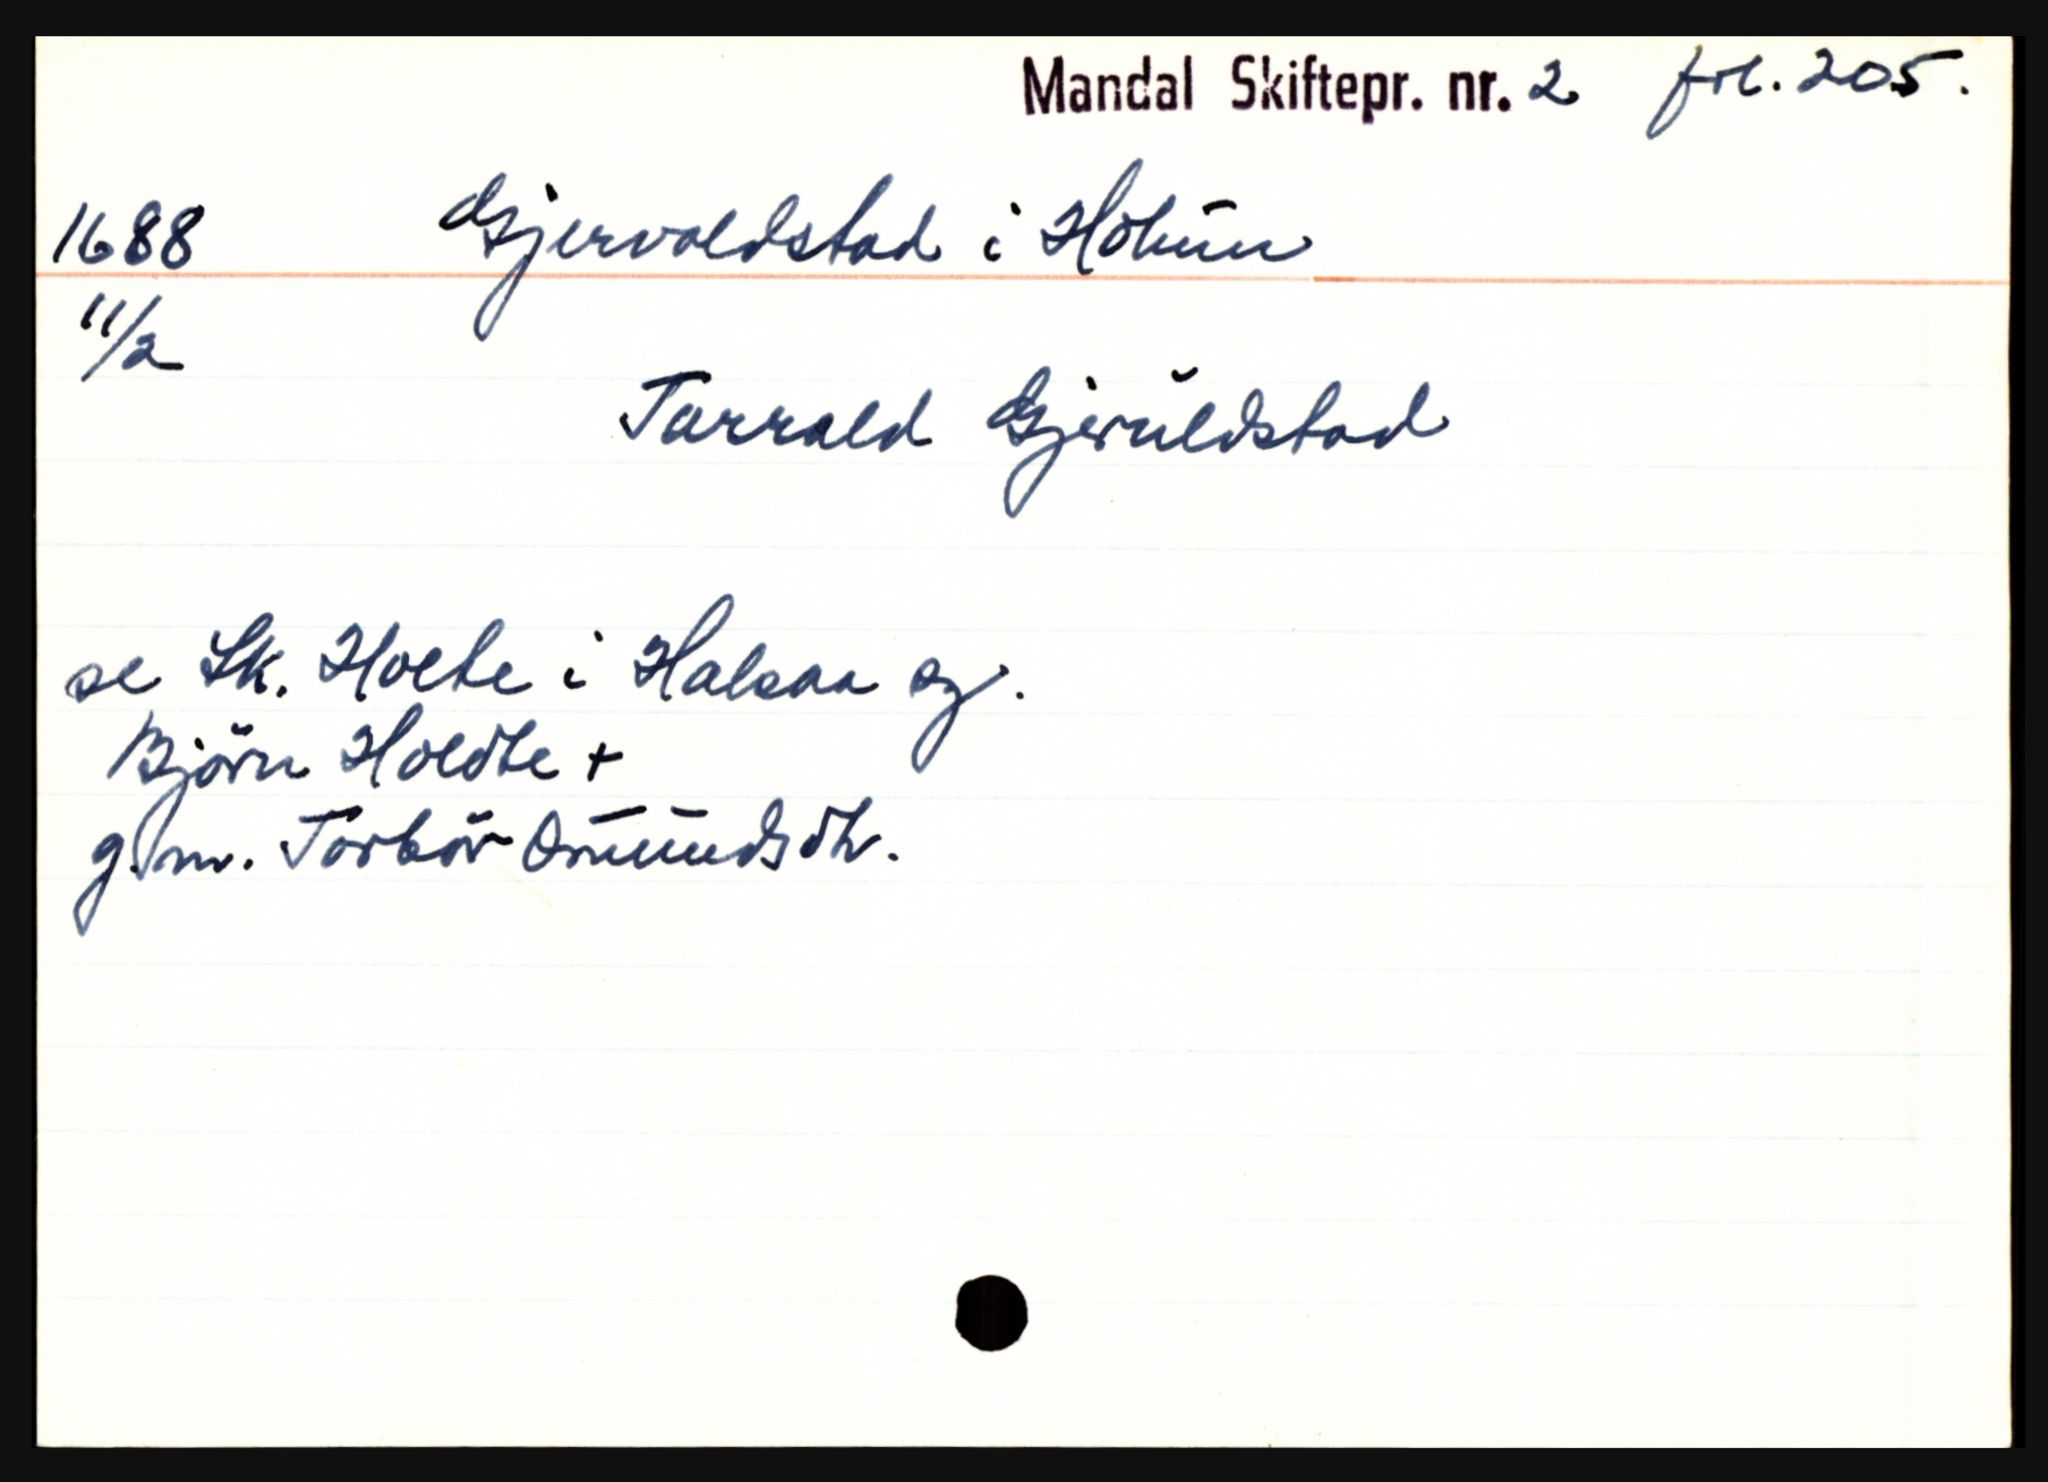 Mandal Skiftepr. nr. 2 fol. 205.
1688 Gjervoldstad i Holum
11/2
Tarrald Gjeruldstad
se Sk. Holte i Halsaa sg.
Björn Holdte +
g.m. Torbör Omundsdtr.